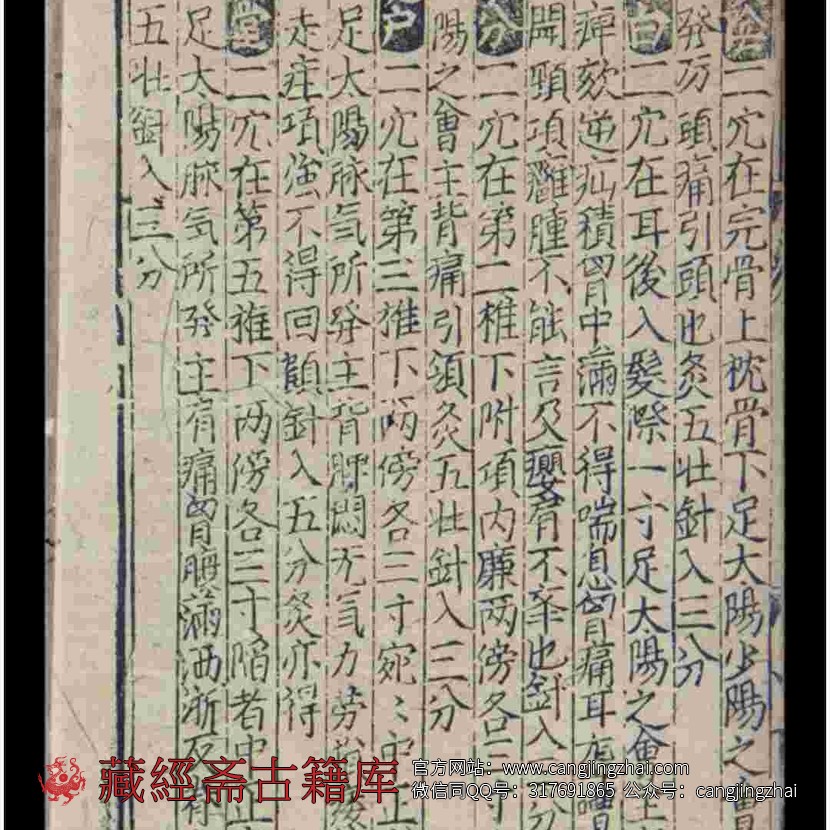 二穴在完骨上枕骨下足太陽少陽之會
發歹頭痛引頭也灸五壯針入三分
白二穴在耳後入髮際一寸足太陽之會
痺欬逆疝積胷中滿不得喘息胷痛耳
開頸項癰腫不能言及癭肩不舉也針入
分二穴在第二椎下附項內廉兩傍各
陽之會主背痛引頷灸五壯針入三分
户二穴在第三椎下兩傍各三寸宛〻中
足太陽脉氣所發主背膊悶无氣力勞
走疰項強不得回顧針入五分灸亦得
堂二穴在第五椎下兩傍各三寸陷者中正
足太陽脉氣所發主肩痛胷腹滿洒淅
五壯針入三分
藏經斋古籍库
官方网站：www.cangjingzhai.com
微信同QQ号：317691865 公众号：cangjingzhai